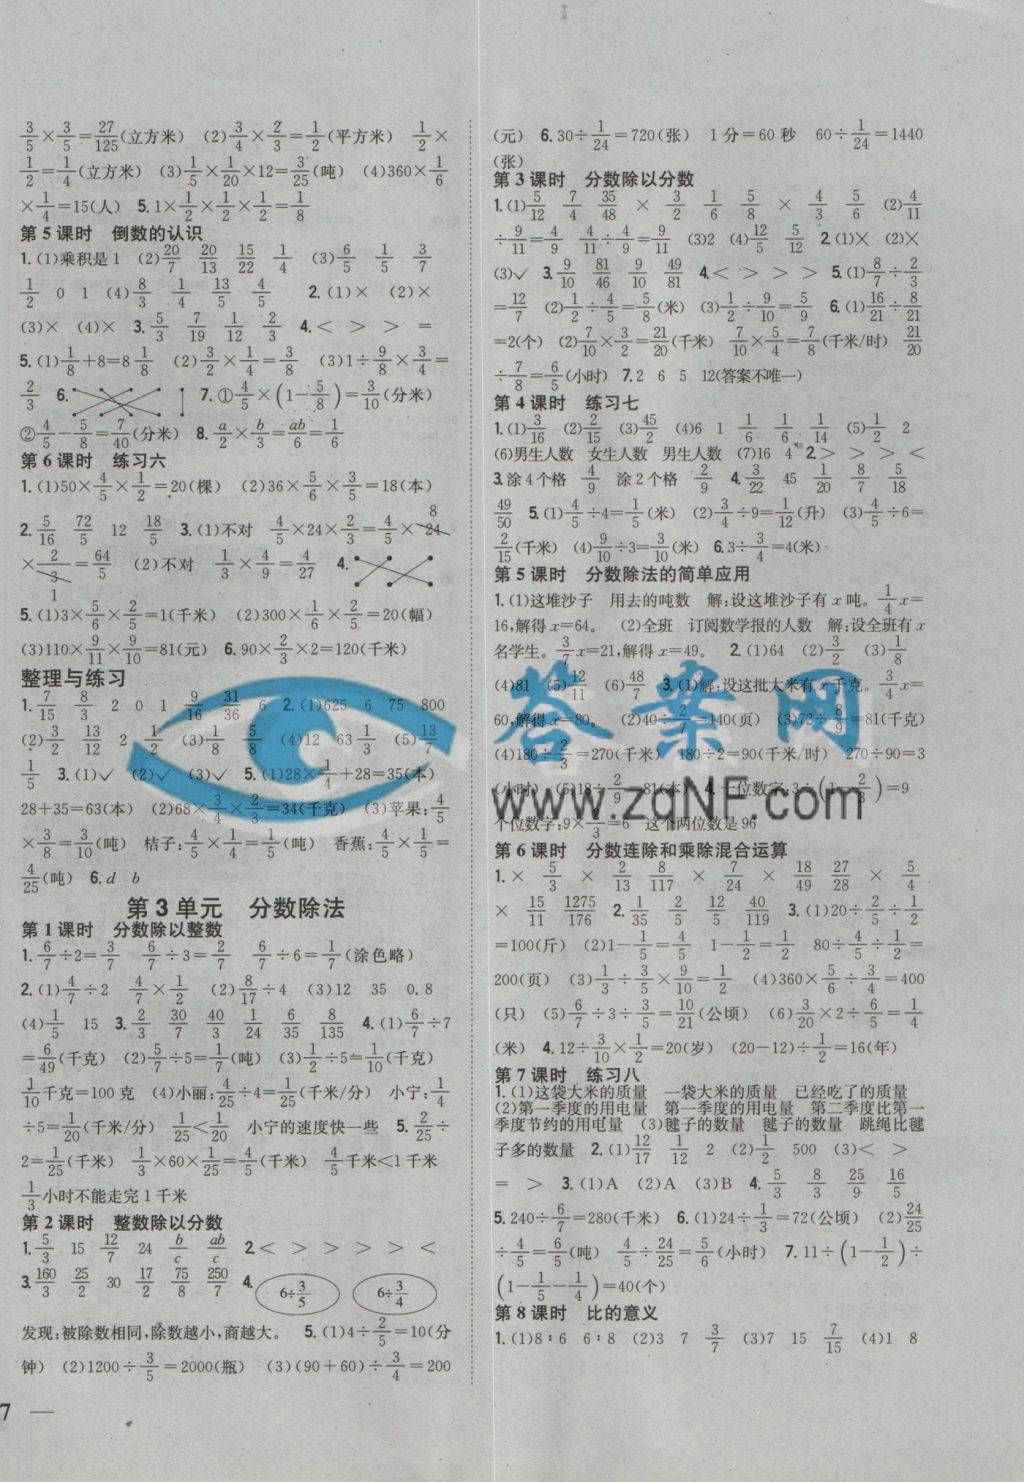 3/5×3/5=27/125(立方米) (2)3/4×2/3=1/2(平方米) 1/2×
1/2=1/4(立方米) (3)1/5×1/20×12=3/25(吨) (4)360×1/6
×1/4=15(人) 5.1×1/2×1/2×1/2=1/8
第5课时 倒数的认识
1.(1)乘积是1 (2)20/7 20/13 15/22 1/4 (3)6/5 1/5 7/3
1/2 0 1 (4)8/3 1/4 13/5 4/5 2.(1)× (2)×
(3)× (4)× 3.5/3 7/19 1/12 2/3 4.< > > =
5.(1)1/8+8=8 1/8 (2)3/2×1/4=3/8 (3)1÷9/8×3/4=
2/3 6. 7.①4/5×(1-5/8)=3/10(分米)
②4/5-5/8=7/40(分米) 8.a/2×b/3=ab/6=1/6
第6课时 练习六
1.(1)50×4/5×1/2=20(棵) (2)36×5/6×3/5=18(本)
2.5/16 72/5 12 18/5 3.(1)不对 4/5×24×2/3=4/5×24 8
×2/3 1=64/5 (2)不对 1/3×4/9=4/27 4.
5.(1)3×5/6×2/5=1(千米) (2)300×1/6×2/5=20(幅)
(3)110×9/11×9/10=81(元) 6.90×2/3×2=120(千米)
整理与练习
1.7/15 8/3 2 0 1 9/16 31/36 6 2.(1)625 6 75 800
(2)3/2 13/12 2 1/2 (3)1/8 5/8 (4)12 63 1/3 (5)13/7
1/5 3.(1)✓ (2)✓ (3)✓ 5.(1)28×1/4+28=35(本)
28+35=63(本) (2)68×3/4×2/3=34(千克) (3)苹果:4/5
×3/8=3/10(吨) 桔子:4/5×1/4=1/5(吨) 香蕉:4/5×1/5=
4/25(吨) 6.d b
第3单元 分数除法
第1课时 分数除以整数
1.6/7÷2=3/7 6/7÷3=2/7 6/7÷6=1/7(涂色略)
2.(1)4/7÷2 4/7×1/2 (2)8/17÷4 (3)12 35 0.8
(4)1/5 15 3.2/3 30/7 40/3 1/24 6/35 8/135 4.(1)6/7÷7
=6/49(千克) (2)5/7÷5=1/7(吨) (3)1/2÷5=1/10(千克)
1/10千克=100克 (4)小丽:4/25÷4=1/25(千米/分) 小宁:1/4
÷5=1/20(千米/分) 1/25<1/20 小宁的速度快一些 5.2/25÷
2=1/25(千米) 1/3×60×1/25=4/5(千米) 4/5千米<1千米
1/3小时不能走完1千米
第2课时 整数除以分数
1.5/3 15 12/7 24 b/c ab/c 2.< > > > > <
3.160/3 25/2 30 17/2 75/8 250/7 4. 6÷3/5 6÷3/4
发现:被除数相同,除数越小,商越大。 5.(1)4÷2/5=10(分
钟) (2)1200÷3/5=2000(瓶) (3)(90+60)÷3/4=200
7 —
(元) 6.30÷1/24=720(张) 1分=60秒 60÷1/24=1440
(张)
第3课时 分数除以分数
1.(1)5/12 7/4 35/48 × 3/2 1/6 5/8 × 4/3 5/6 (2)4/11
÷9/11=4/9 4/11÷4/9=9/11 (3)2 (4)12/5 5/12 2.(1)× (2)×
(3)✓ 3.9/10 81/46 9/10 49/81 4.< > > > 5.(1)8/7÷2/3
=12/7 (2)1/2÷4/5=5/8(米) (3)1/2÷9/10=5/9 6.(1)16/21÷8/21
=2(个) (2)7/10×2/3=7/15÷7/10=2/3 7/21(千米) 7/10×5/4=7/8(千米/时) 21/20
÷7/8=6/5(小时) 7.2 6 5 12(答案不唯一)
第4课时 练习七
1.(1)3/16 (2)2/15 (3)45/2 (4)6 1 1/6 1/6 1/14 (5)1/2 2
(6)男生人数 女生人数 男生人数 (7)16 4 2.> > > <
3.涂4个格 4/9 涂2个格 2/9 4.4/22 45 1/20 7/8 5/18
49/50 5.(1)4/5÷4=1/5(米) (2)3/4÷9=1/12(升) (3)4/5÷6=
2/15(千米) (4)9/10÷3=3/10(米) 6.3÷3/4=4(米)
第5课时 分数除法的简单应用
1.(1)这堆沙子 用去的吨数 解:设这堆沙子有x吨。1/4x=
16,解得x=64。 (2)全班 订阅数学报的人数 解:设全班有x
名学生。3/7x=21,解得x=49。 2.(1)64 (2)3/2 (3)1/9
(4)81 (5)12/11 (6)48/7 3.(1)解:设这批大米有x千克。3/4x=
60,解得x=80。 (2)40÷2/7=140(页) (3)72÷8/9=81(千克)
(4)180÷2/3=270(千米) 180÷2=90(千米/时) 270÷90=3
(小时) (5)18÷2/9=81(本) 4.十位数字:3÷(1-2/3)=9
个位数字:9×2/3=6 这个两位数是96
第6课时 分数连除和乘除混合运算
1.× 5/3 × 2/13 8/117 × 7/24 × 18/49 27/28 × 5/4
× 15/11 1275/176 2.1/35 2/5 12/5 40/119 3.(1)20÷2/5÷1/2
=100(斤) (2)1-1/5=4/5 1-1/2=1/2 80÷4/5÷1/2=
200(页) (3)1/3÷3/5×9/10=1/2 (4)360×5/6÷3/4=400
(只) (5)6/7÷3÷3/5=10/21(公顷) (6)3/20×2÷6/5=1/4
(米) 4.12÷3/10×1/2=20(岁) (20-12)÷1/2=16(年)
第7课时 练习八
1.(1)这袋大米的质量 一袋大米的质量 已经吃了的质量
(2)第一季度的用电量 第一季度的用电量 第二季度比第一
季度节约的用电量 (3)毽子的数量 毽子的数量 跳绳比毽
子多的数量 2.(1)12/17 11/12 2 (2)1/2 500 (3)< >
= > 3.(1)A (2)A (3)B 4.5/3 3/8 25/9 16/5
5.240÷6/7=280(千米) 6.(1)24÷1/3=72(公顷) (2)24/25
÷4/5=6/5(吨) 4/5÷24/25=5/6(小时) 7.11÷(1-1/2)÷
(1-1/5-1/4)=40(个)
第8课时 比的意义
1.(1)8∶6 6∶8 (2)3 7 3/7 (3)7 15 7/15 (4)1 8
答案网
www.zqNF.com